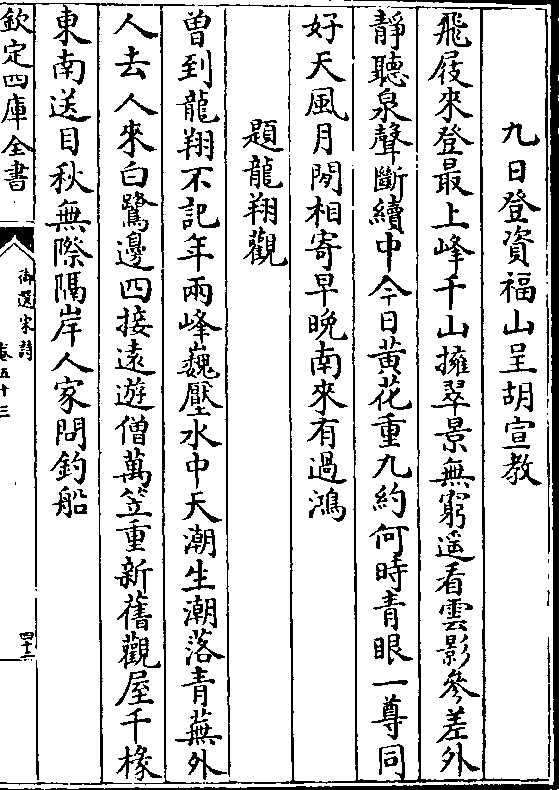 九日登資福山呈胡宣教
飛屐來登最上峰千山擁翠景無窮遥看雲影參差外
靜聽泉聲斷續中今日黄花重九約何時青眼一尊同
好天風月閒相寄早晚南來有過鴻
題龍翔觀
曽到龍翔不記年兩峰巍壓水中天潮生潮落青蕪外
人去人來白鷺邊四接遠遊僧萬笠重新舊觀屋千椽
東南送目秋無際隔岸人家問釣船
欽定四庫全書
御選宋詩
卷五十三
四十二